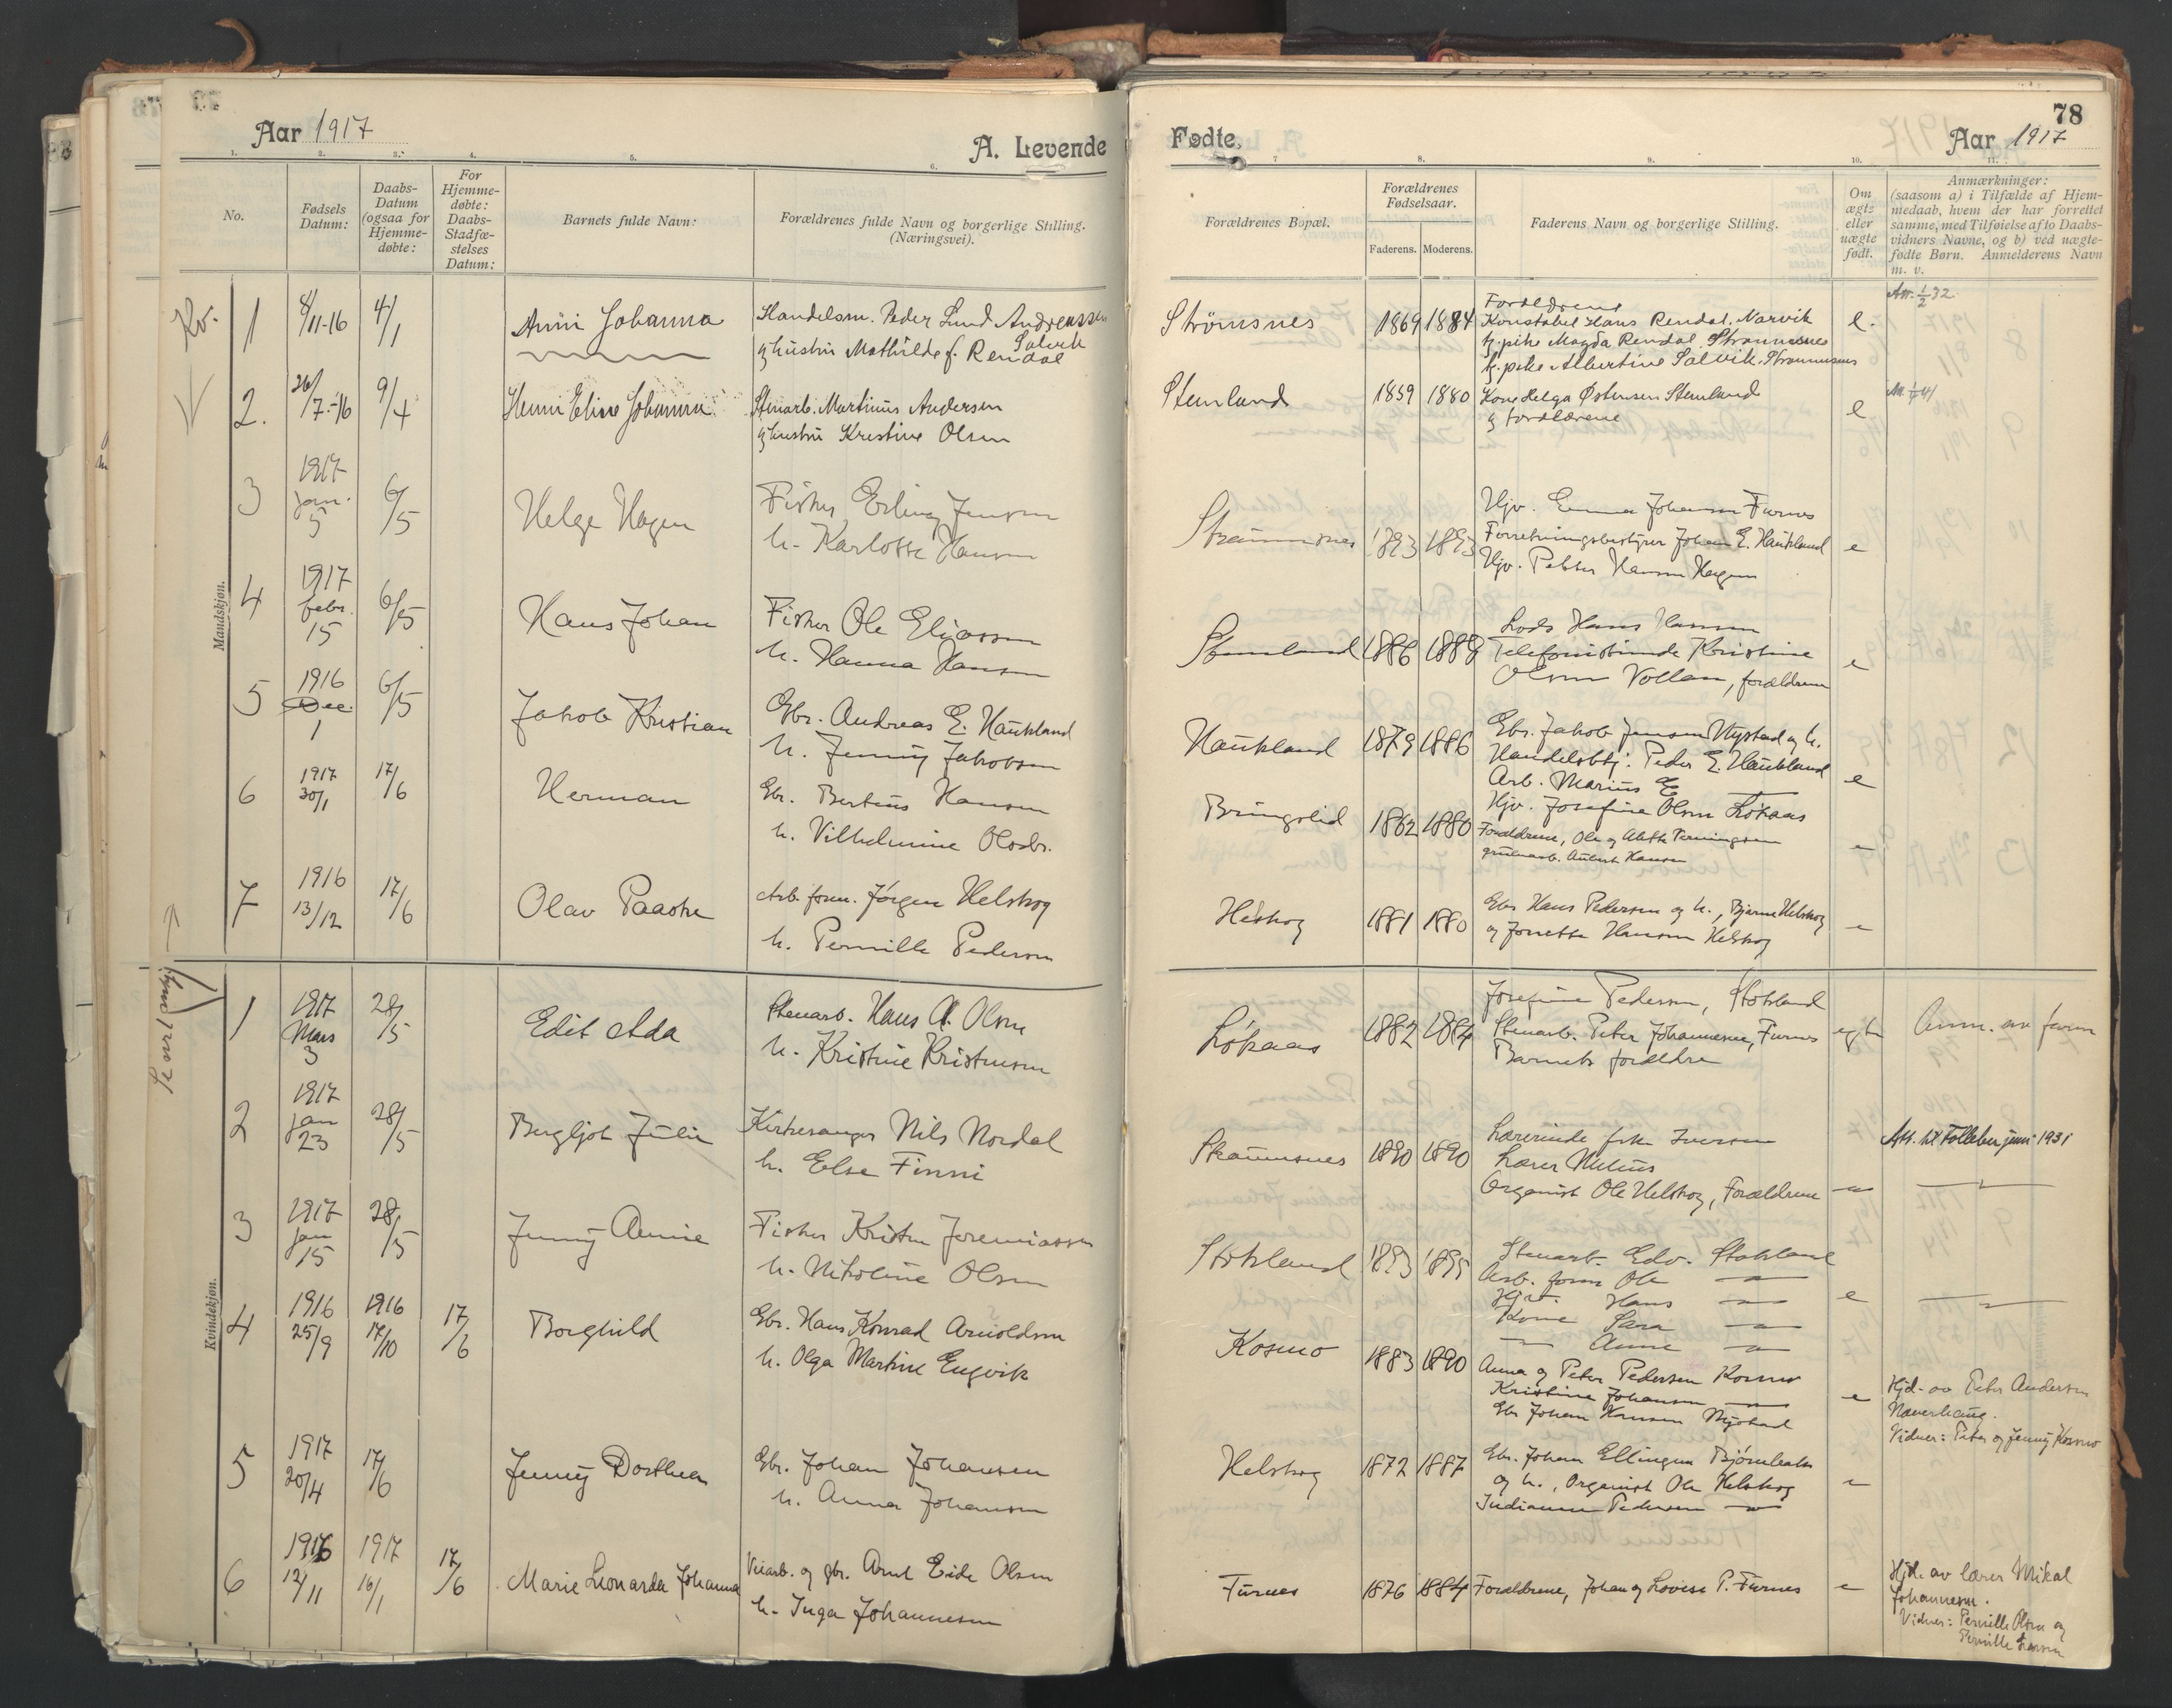 78
Aar 1917
A. Levende
Fødte.
Aar 1917
1. 2. 3. 4. 5. 6. 7 8. 9. 10. 11.
No.
Fødsels Datum:
Daabs-Datum (ogsaa for Hjemme-døbte:
For Hjemme-døbte: Daabs-Stadfæ-stelses Datum:
Barnets fulde Navn:
Forældrenes fulde Navn og borgerlige Stilling. (Næringsvei).
Forældrenes Bopæl.
Forældrenes Fødselsaar.
Faderens. Moderens.
Faderens Navn og borgerlige Stilling.
Om ægte eller uægte født.
Anmærkninger:
(saasom a) i Tilfælde af Hjem-
medaab, hvem der har forrettet
samme, med Tilføielse af to Daabs-
vidners Navne, og b) ved uægte-
fødte Børn. Anmelderens Navn
m. v.
Mandskjøn.
Kv. 1 8/11-16 4/1 Anni Johanna
Handelsm. Peder Lund Andreassen
Salvik
g hustru Mathilde f. Rendal
Strømsnes 1869 1884
Forældrene
Konstabel Hans Rendal, Narvik
g. pike Magda Rendal, Strømsnes
g. pike Albertine Salvik, Strømsnes
e.
Att. 1/2 32
2. 26/7-16 9/4 Henni Eline Johanna
Stenarb. Martinus Andersen
g hustru Kristine Olsen
Stemland 1859 1880
Kone Helga Østensen Stemland
g forældrene
e
3 1917 Jan. 5 6/5 Helge Hagen
Fisker Erling Jensen
h. Karlotte Hansen
Straumsnes 1893 1893
Ugv. Emma Johansen Furnes
Forretningsbestyrer Johan E. Haukland
Ugv. Petter Hansen Hagen
e
4 1917 febr. 15 6/5 Hans Johan
Fisker Ole Eliassen
h. Hanna Hansen
Stemland 1886 1888
Lods Hans Hansen
Telefonistinde Kristine
Olsen Vollan, forældrene
e
5 1916 Dec. 1 6/5 Jakob Kristian
Gbr. Andreas E. Haukland
h. Jenny Jakobsen
Haukland 1879 1886
Gbr. Jakob Jensen Nystad og h.
Handelsbtj. Peder E. Haukland
Arb. Marius E
e
6 1917 30/1 17/6 Herman
Gbr. Berteus Hansen
h. Vilhelmine Olsdtr.
Bringslid 1862 1880
Ugv. Josefine Olsen Løkaas
Forældrene, Ole og Alette Penningsen
grubearb. Aubert Hansen
7 1916 13/12 17/6 Olav Paaske
Arb. form. Jørgen Helskog
h. Pernille Pedersen
Helskog 1881 1880
Gbr Hans Pedersen og h., Bjarne Helskog
og Jonette Hansen Helskog
Kvindekjøn.
1 1917 Mars 3 28/5 Edit Ada
Stenarb. Hans A. Olsen
h. Kristine Kristensen
Løkaas 1882 1884
Josefine Pedersen, Stokland
Stenarb. Peter Johannesen, Furnes
Barnets forældre
egte
Anm. av faren
2 1917 Jan 23 28/5 Bergljot Julie
Kirkesanger Nils Nordal
h. Else Finni
Straumsnes 1890 1890
Lærerinde frk. Iversen
Lærer Nilius
Organist Ole Helskog, Forældrene
Att. til Follebu juni 1931
3 1917 Jan 15 28/5 Jenny Annie
Fisker Kristen Jeremiassen
h. Nikoline Olsen
Stokland 1893 1895
Stenarb. Edv. Stokland
Arb. form Ole
Hans
Kone Sara
Anne
e
4 1916 25/9 1916 17/10 17/6 Borghild
Gbr. Hans Konrad Arnoldsen
h. Olga Martine Engvik
Kosmo 1883 1890
Anna og Peter Pedersen Kosmo
Kristine Johansen
Gbr Johan Hansen Nystad
e
Hjd. av Peter Andersen
Naverhaug.
Vidner: Peter og Jenny Kosmo
5 1917 20/4 17/6 Jenny Dorthea
Gbr. Johan Johansen
h. Anna Johansen
Helskog 1872 1887
Gbr. Johan Ellingsen Bjørnbakk
og h., Organist Ole Helskog
Indianna Pedersen
6 1916 12/11 1917 16/1 17/6 Marie Leonarda Johanna
Veiarb. og gbr. Arnt Eide Olsen
h. Inga Johannesen
Furnes 1876 1884
Forældrene, Johan og Lovise P. Furnes
Hjd. av lærer Mikal
Johannesen.
Vidner: Pernille Olsen og
Pernille